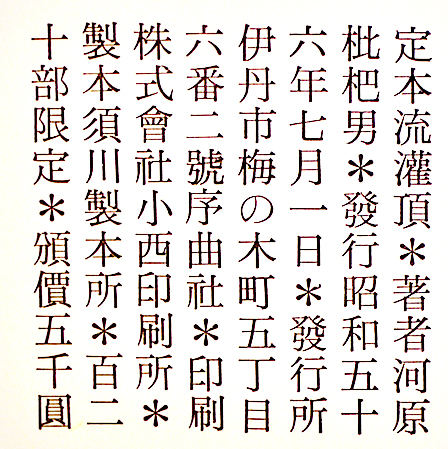 定本流灌頂＊著者河原
枇杷男＊發行昭和五十
六年七月一日＊發行所
伊丹市梅の木町五丁目
六番二號序曲社＊印刷
株式會社小西印刷所＊
製本須川製本所＊百二
十部限定＊頒價五千圓